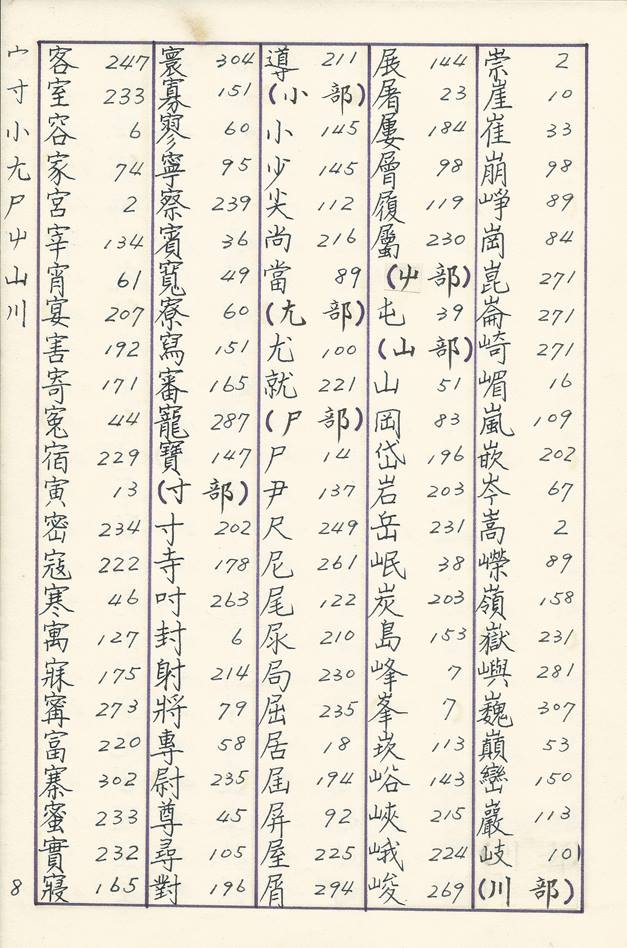 宀
寸
小
尢
尸
屮
山
川
8
客 247
室 233
容 6
家 74
宮 2
宰 134
宵 61
宴 207
害 192
寄 171
冤 44
宿 229
寅 13
密 234
寇 222
寒 46
寓 127
寐 175
富 220
寨 302
蜜 233
實 232
寢 165
寰 304
寡 151
寥 60
寧 95
察 239
賓 36
寬 49
寮 60
寫 151
審 165
寵 287
寶 147
(寸 部)
寸 202
寺 178
吋 263
封 6
射 214
將 79
專 58
尉 235
尊 45
尋 105
對 196
導 211
(小 部)
小 145
少 145
尖 112
尚 216
當 89
(尢 部)
尤 100
就 221
(尸 部)
尸 14
尹 137
尺 249
尼 261
尾 122
尿 210
局 230
屈 235
居 18
屆 194
屏 92
屋 225
屑 294
展 144
屠 23
屢 184
層 98
履 119
屬 230
(屮 部)
屯 39
(山 部)
山 51
岡 83
岱 196
岩 203
岳 231
岷 38
炭 203
島 153
峰 7
峯 7
崁 113
峪 143
峽 215
峨 224
峻 269
崇 2
崖 10
崔 33
崩 98
崢 89
崗 84
崑 271
崙 271
崎 271
嵋 16
嵐 109
嵌 202
岑 67
嵩 2
嶸 89
嶺 158
嶽 231
嶼 281
巍 307
巔 53
巒 150
巖 113
岐 10
(川 部)